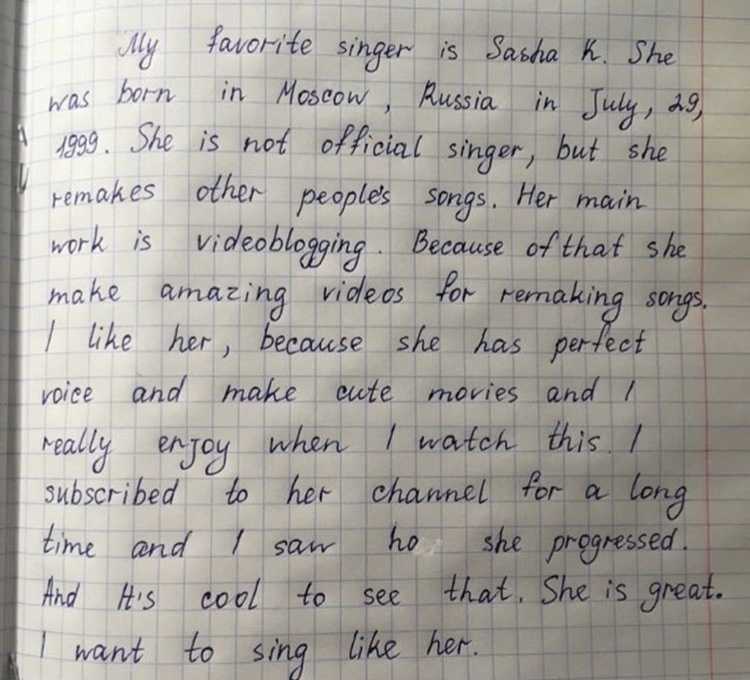 My favorite singer is Sasha K. She
was born in Moscow, Russia in July, 29,
1999. She is not official singer, but she
remakes other people's songs. Her main
work is videoblogging. Because of that she
make amazing videos for remaking songs.
I like her, because she has perfect
voice and make cute movies and I
really enjoy when I watch this. I
subscribed to her channel for a long
time and I saw ho she progressed.
And It's cool to see that. She is great.
I want to sing like her.